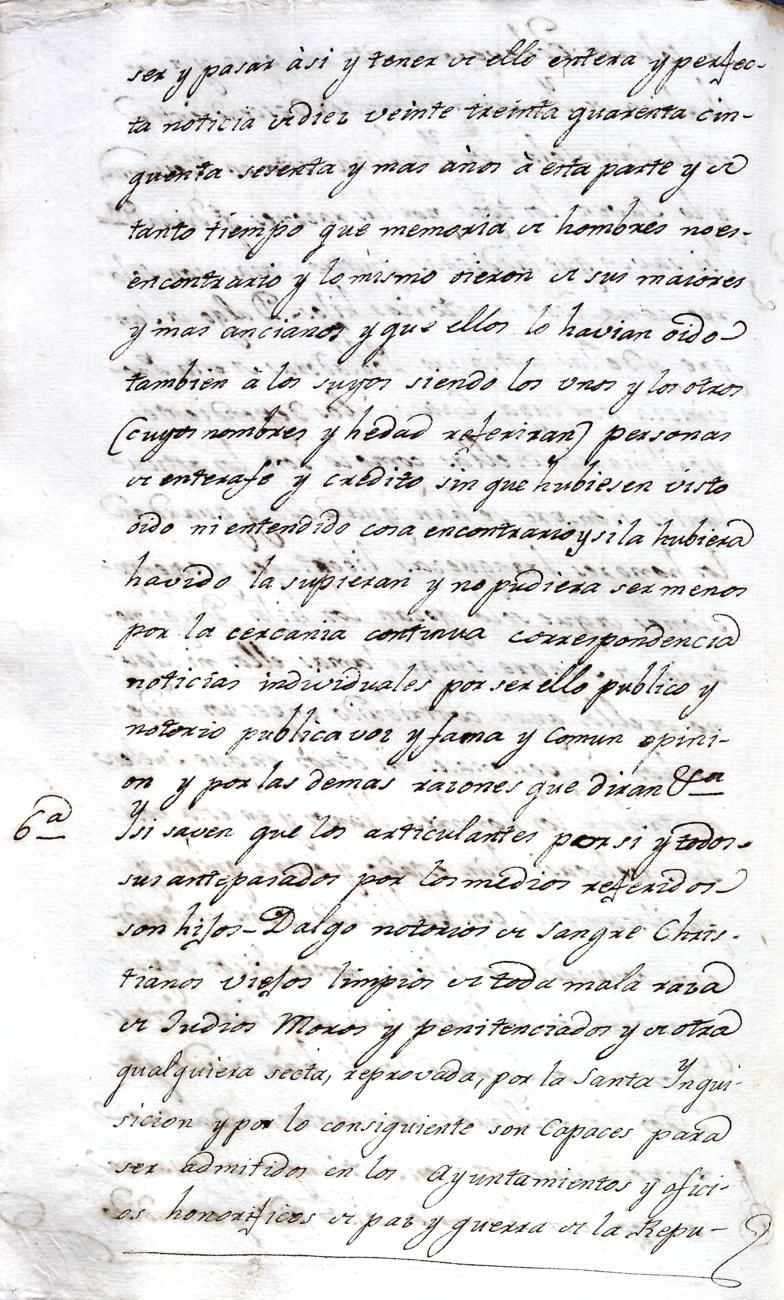 ser y pasar àsi y tener de ello entera y perfec-
ta noticia de diez veinte treinta quarenta cin-
quenta sesenta y mas años à esta parte y de
tanto tiempo que memoria de hombres no es-
encontrario y lo mismo oieron de sus maiores
y mas ancianos y que ellos lo havian oido
tambien à los suyos siendo los unos y los otros
(cuyos nombres y hedad referiran) personas
de entera fè y credito sin que hubiesen visto
oido ni entendido cosa encontrario y si la hubiera
havido la supieran y no pudiera ser menos
por la cercania continua correspondencia
noticias individuales por ser ello publico y
notorio publica voz y fama y comun opini-
on y por las demas razones que diran &a
6a Y si saven que los articulantes por si y todos
sus antepasados por los medios referidos
son hijos-Dalgo notorios de sangre Chris-
tianos viejos limpios de toda mala raza
de Judios Moros y penitenciados y de otra
qualquiera secta, reprovada, por la Santa Ynqui-
sicion y por lo consiguiente son Capaces para
ser admitidos en los Ayuntamientos y ofici-
os honorificos de paz y guerra de la Repu-